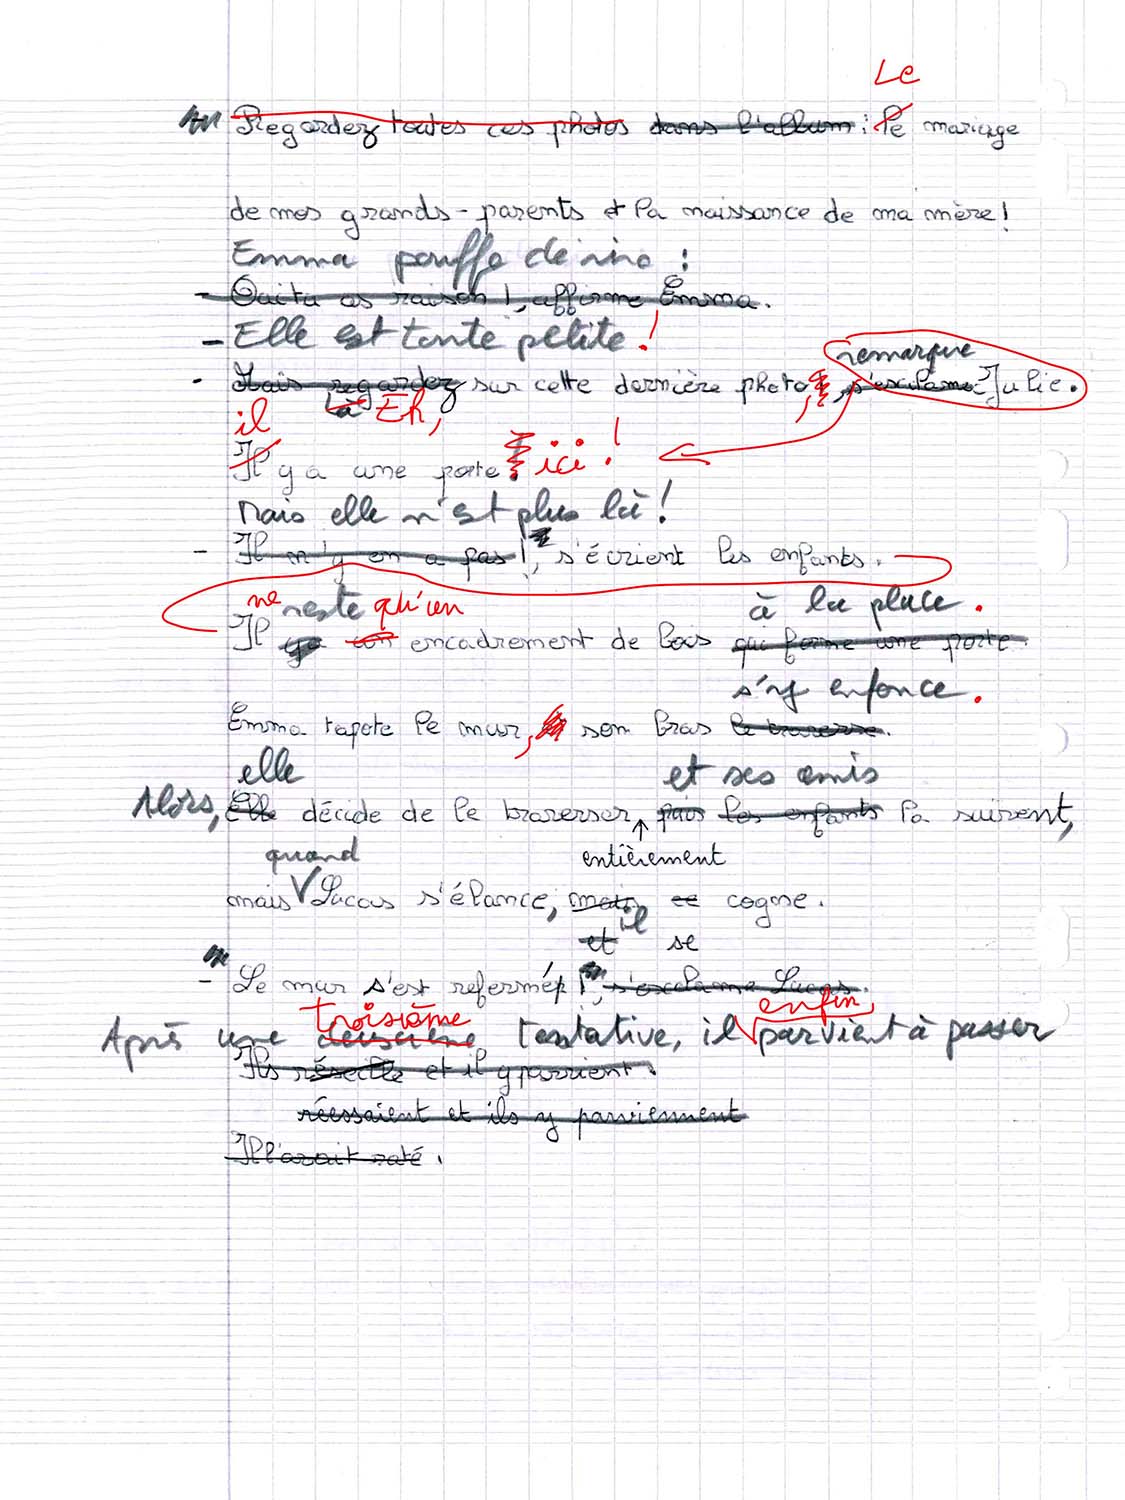 Le
Regardez toutes ces photos dans l'album : le mariage
de mes grands-parents et la naissance de ma mère !
Emma pouffe de rire :
- Oui tu as raison !, affirme Emma.
- Elle est toute petite !
remarque
- Mais regardez sur cette dernière photo, s'exclame Julie.
il là Eh,
Il y a une porte ici !
Mais elle n'est plus là !
- Il n'y en a pas !, s'écrient les enfants.
ne reste qu'un à la place.
Il y a un encadrement de bois qui forme une porte.
s'y enfonce.
Emma tapote le mur, son bras le traverse.
elle et ses amis
Alors, Elle décide de le traverser, puis les enfants la suivent,
quand entièrement
mais Lucas s'élance, mais se cogne.
et il se
- Le mur s'est refermé !, s'exclame Lucas.
troisième enfin
Après une deuxième tentative, il parvient à passer
Ils réessaie et il y parvient.
réessaient et ils y parviennent
Il l'avait raté.